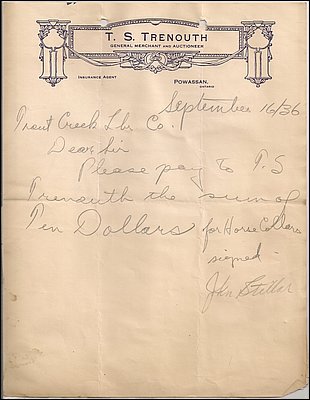 T. S. TRENOUTH
GENERAL MERCHANT AND AUCTIONEER
INSURANCE AGENT
POWASSAN,
ONTARIO
September 16/36
Trout Creek Lbr Co.
Dear Sir
Please pay to T. S
Trenouth the sum of
Ten Dollars for Horse Collars
signed
John Stillar